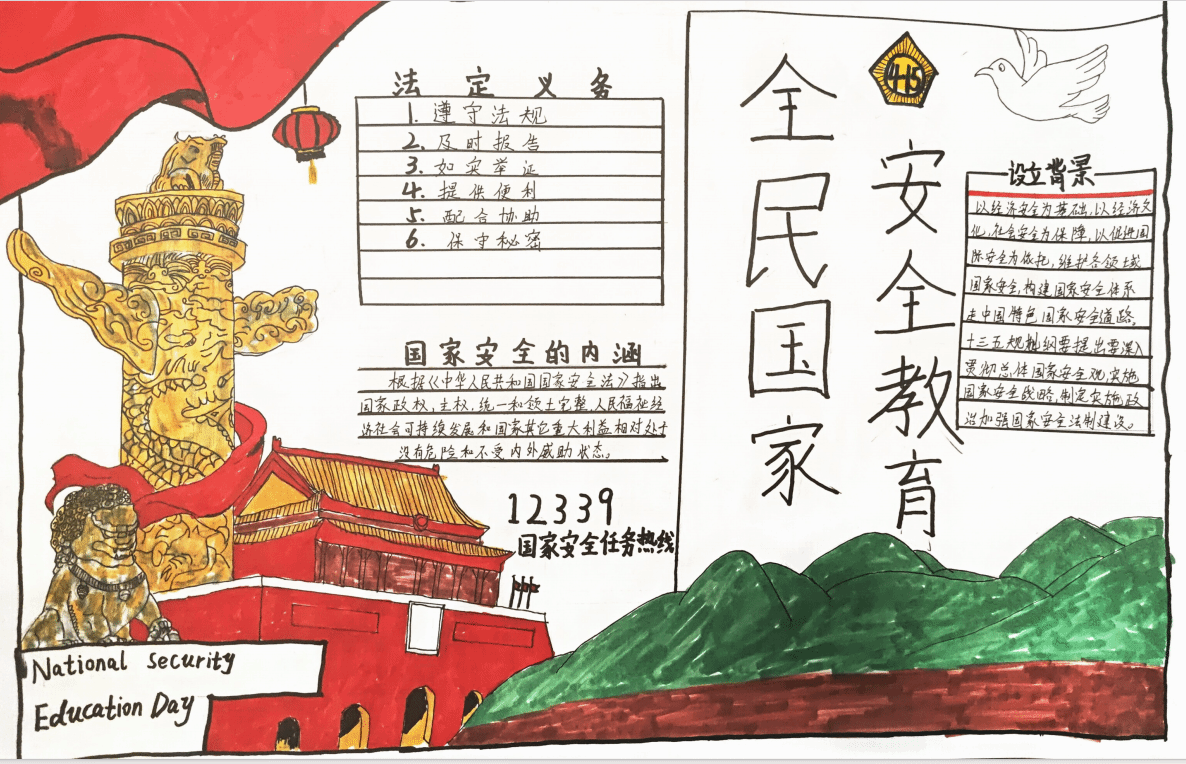 法定义务
1. 遵守法规
2. 及时报告
3. 如实举证
4. 提供便利
5. 配合协助
6. 保守秘密
国家安全的内涵
根据《中华人民共和国国家安全法》指出
国家政权,主权,统一和领土完整,人民福祉经
济社会可持续发展和国家其它重大利益相对处于
没有危险和不受内外威胁状态。
12339
国家安全任务热线
National security
Education Day
全民国家
4·15
安全教育
设立背景
以经济安全为基础,以经济文
化,社会安全为保障,以促进国
际安全为依托,维护各领域
国家安全,构建国家安全体系
走中国特色国家安全道路。
十三五规划纲要提出要深入
贯彻总体国家安全观,实施
国家安全战略,制定实施政
治加强国家安全法制建设。